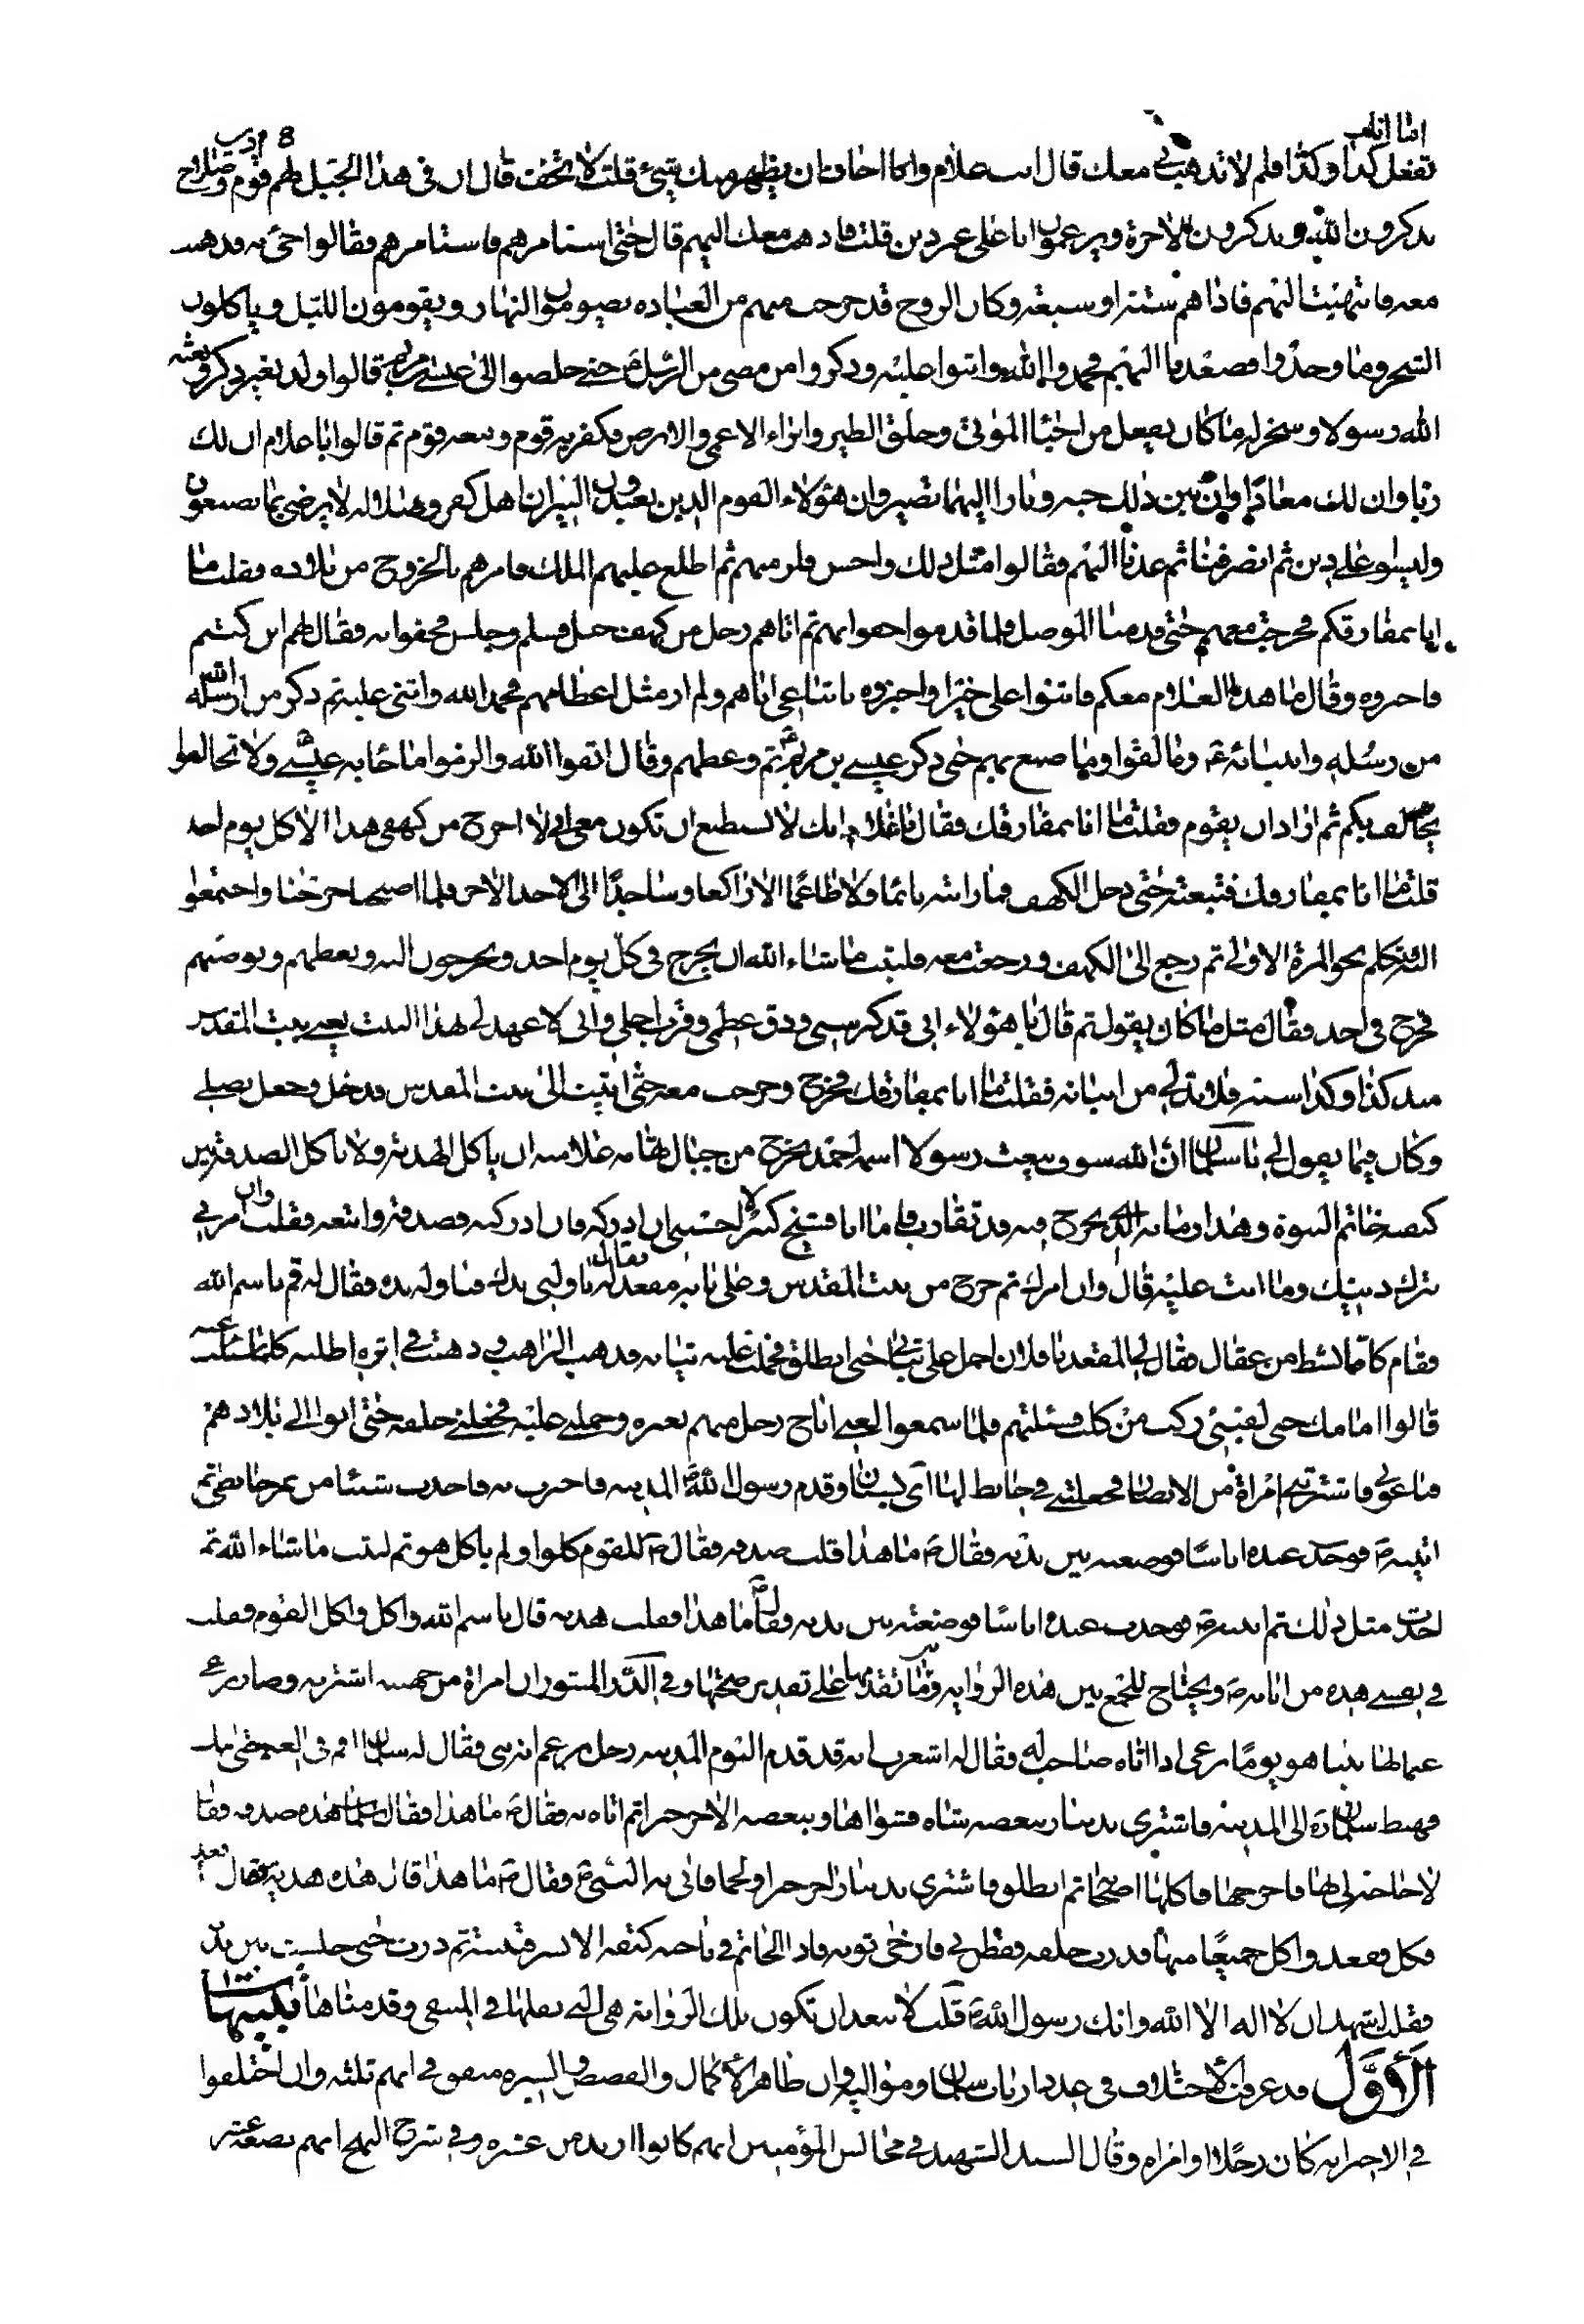 تفعل كذا وكذا فلم لا تذهب بي معك قال انت غلام وانا اخاف ان يظهر منك شيئ قلت لا تخف قال ان في هذا الجبل لهم قوم وصلاح
يذكرون الله ويذكرون الاخرة ويزعمون انا على غير دين قلت فاذهب معك اليهم قال حتى استامرهم فاستامرهم فقالوا جئ به فذهبت
معه فانتهيت اليهم فاذا هم ستة او سبعة وكان الروح قد خرجت منهم من العبادة يصومون النهار ويقومون الليل وياكلون
الشجر وما وجدوا فصعدنا اليهم فحمدوا الله واثنوا عليه وذكروا من مضى من الرسل حتى خلصوا الى عيسى بن مريم قالوا ولد بغير ذكر وبعثه
الله رسولا وسخر له ما كان يفعل من احياء الموتى وخلق الطير وابراء الاعمى والابرص فكفر به قوم وتبعه قوم ثم قالوا يا غلام ان لك
ربا وان لك معادا وان بين ذلك جنة ونارا اليهما تصير وان هؤلاء القوم الذين يعبدون النيران اهل كفر وضلالة لا يرضى بما يصنعون
وليسوا على دين ثم انصرفنا ثم عدنا اليهم فقالوا مثل ذلك واحسن فلزمتهم ثم اطلع عليهم الملك فامرهم بالخروج من بلاده فقلت ما
انا بمفارقكم فخرجت معهم حتى قدمنا الموصل فلما قدموا حفوا بهم ثم اتاهم رجل من كهف جبل فسلم وجلس فحفوا به فقال لهم اين كنتم
فاخبروه وقال ما هذا الغلام معكم فاثنوا علي خيرا واخبروه باتباعي اياهم ولم ار مثل اعظامهم فحمد الله واثنى عليه ثم ذكر من ارسله الله
من رسله وانبيائه وما لقوا وما صنع بهم حتى ذكر عيسى بن مريم ثم وعظهم وقال اتقوا الله والزموا ما جاء به عيسى ولا تخالفوا
يخالف بكم ثم اراد ان يقوم فقلت ما انا بمفارقك فقال يا غلام انك لا تستطيع ان تكون معي اني لا اخرج من كهفي هذا الا كل يوم احد
قلت ما انا بمفارقك فتبعته حتى دخل الكهف فما رايته نائما ولا طاعما الا راكعا وساجدا الى الاحد الاخر فلما اصبحنا خرجنا واجتمعوا
اليه فتكلم نحو المرة الاولى ثم رجع الى الكهف ورجعت معه فلبثت ما شاء الله ان يخرج في كل يوم احد ويخرجون اليه ويعظهم ويوصيهم
فخرج في احد فقال مثل ما كان يقول ثم قال يا هؤلاء اني قد كبر سني ودق عظمي وقرب اجلي واني لا عهد لي بهذا البيت يعني بيت المقدس
منذ كذا وكذا سنة فلا بد لي من اتيانه فقلت ما انا بمفارقك فخرج وخرجت معه حتى اتيت الى بيت المقدس فدخل وجعل يصلي
وكان فيما يقول لي يا سلمان ان الله سوف يبعث رسولا اسمه احمد يخرج من جبال تهامة علامته ان ياكل الهدية ولا ياكل الصدقة بين
كتفيه خاتم النبوة وهذا زمانه الذي يخرج فيه قد تقارب فاما انا فشيخ كبير لا احسبني ان ادركه فان ادركته فصدقه واتبعه فقلت وان امرني
بترك دينك وما انت عليه قال وان امرك ثم خرج من بيت المقدس وعلى بابه مقعد فقال له ناولني يدك فناوله يده فقال له قم باسم الله
فقام كانما نشط من عقال فقال لي المقعد يا غلام احمل علي ثيابي حتى انطلق فحملت عليه ثيابه فذهب الراهب وذهبت في اثره اطلبه كلما سئلت عنه
قالوا امامك حتى لقيني ركب من كلب فسئلتهم فلما سمعوا لغتي اناخ رجل منهم بعيره وحملني عليه فجعلني خلفه حتى اتوا الى بلادهم
فباعوني فاشترتني امراة من الانصار فجعلتني في حائط لها اي بستان وقدم رسول الله المدينة فاخبرت به فاخذت شيئا من ثمر حائطي ثم
اتيته فوجدت عنده اناسا فوضعته بين يديه فقال ما هذا قلت صدقة فقال للقوم كلوا ولم ياكل هو ثم لبثت ما شاء الله ثم
اخذت مثل ذلك ثم اتيته فوجدت عنده اناسا فوضعته بين يديه فقال ما هذا فقلت هدية قال باسم الله واكل واكل القوم فقلت
في نفسي هذه من اياته ويحتاج للجمع بين هذه الرواية وما تقدمها على تقدير صحتها وفي الدر المنثور ان امراة من جهينة اشترته وصار يرعى
غنما لها بينا هو يوما يرعى اذ اتاه صاحب له فقال له اشعرت انه قد قدم اليوم المدينة رجل يزعم انه نبي فقال له سلمان اقم في الغنم حتى اتيك
فهبط سلمان الى المدينة فاشترى بدينار ببعضه شاة فشواها وببعضه الاخر خبزا ثم اتاه به فقال ما هذا فقال سلمان هذه صدقة فقال
لا حاجة لي بها فاخرجها فاكلها اصحابه ثم انطلق فاشترى بدينار اخر خبزا ولحما فاتى به النبي فقال ما هذا قال هذه هدية فقال فاقعد
فكل فقعد واكل جميعا منها فدرت خلفه ففطن بي فارخى ثوبه فاذا الخاتم في ناحية كتفه الايسر فتبينته ثم درت حتى جلست بين يديه
فقلت اشهد ان لا اله الا الله وانك رسول الله قلت لا يبعد ان تكون تلك الرواية هي التي نقلها في المنتقى وقد مناها تنبيهات
الأوّل قد عرفت الاختلاف في عدد ارباب سلمان ومواليه وان ظاهر الاكمال والقصص والسيرة متفق في انهم ثلثة وان اختلفوا
في الاخير انه كان رجلا او امراة وقال السيد الشهيد في مجالس المؤمنين انهم كانوا ازيد من عشرة وفي شرح النهج انهم بضعة عشر